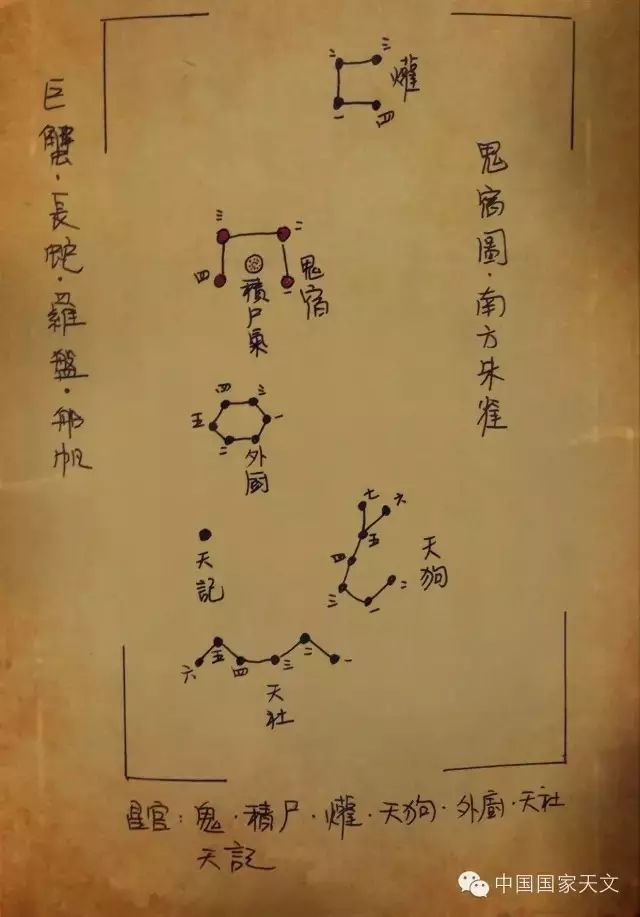 鬼宿圖·南方朱雀
巨蟹·長蛇·羅盤·船帆
二 三
爟
一 四
三 二
四 一
鬼宿
積尸氣
四 三
五 一
二
外厨
天記
七 六
五
四
三 一 二
天狗
六 五 四 三 二 一
天社
星官:鬼·積尸·爟·天狗·外廚·天社
天記
中国国家天文